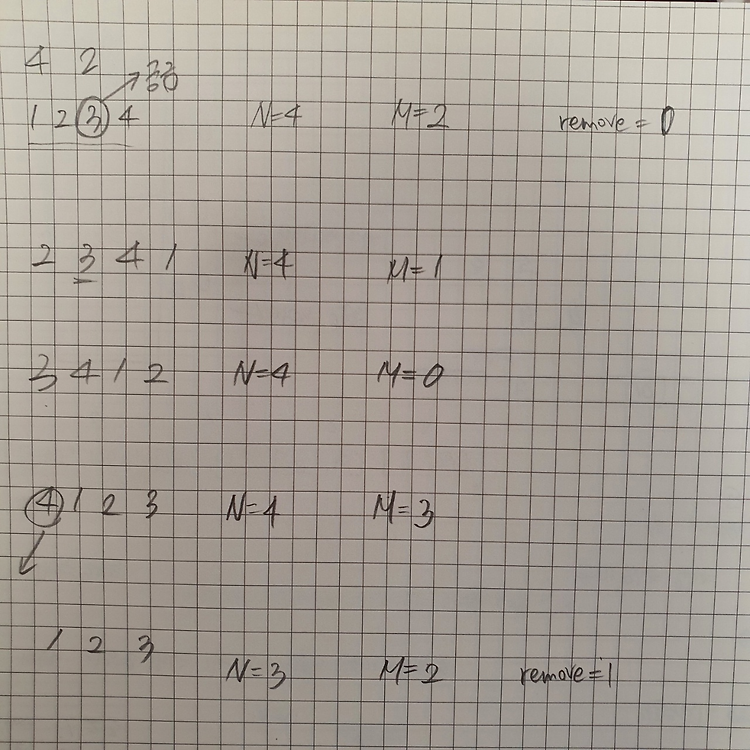 4 2
1 2 3 4 N=4 M=2 remove = 0
2 3 4 1 N=4 M=1
3 4 1 2 N=4 M=0
4 1 2 3 N=4 M=3
1 2 3
N=3 M=2 remove=1